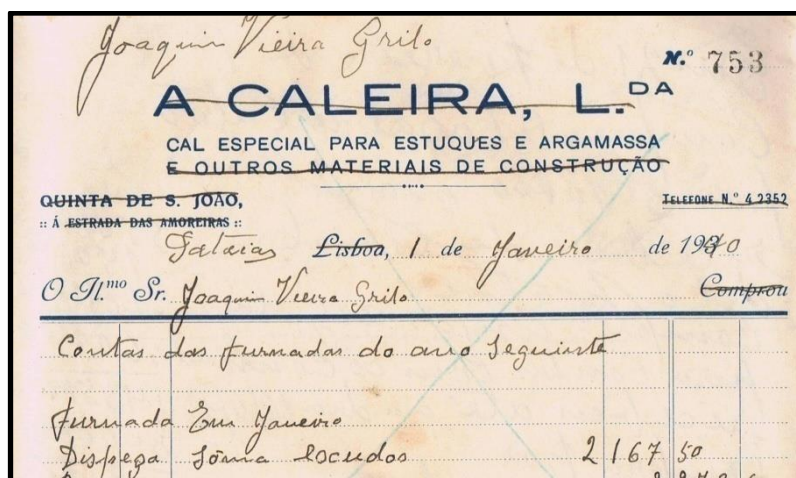 Joaquim Vieira Grilo
N.º 753
A CALEIRA, L.DA
CAL ESPECIAL PARA ESTUQUES E ARGAMASSA
E OUTROS MATERIAIS DE CONSTRUÇÃO
QUINTA DE S. JOÃO,
:: Á ESTRADA DAS AMOREIRAS ::
TELEFONE N.º 4 2352
Pataias Lisboa, 1 de Janeiro de 1940
O Il.mo Sr. Joaquim Vieira Grilo Comprou
Contas das furnadas do ano Seguinte
furnada Em Janeiro
Dispeza Sôma escudos 2 167 50